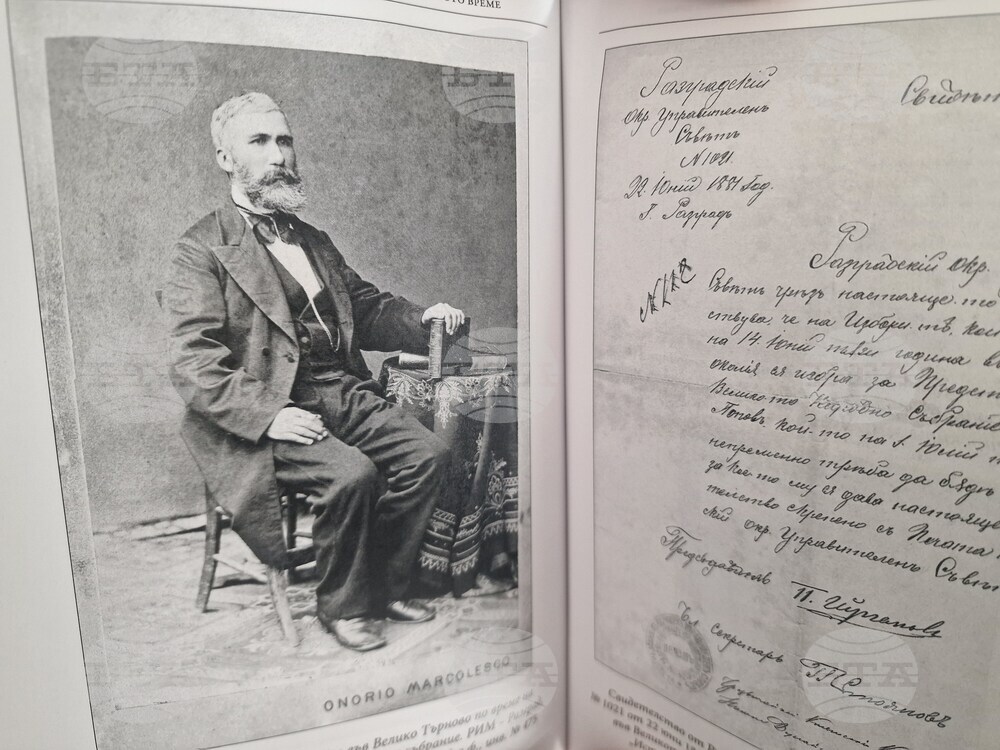 ТО ВРЕМЕ
БТА
ONORIO MARCOLESCO
във Велико Търново по време на
събрание. РИМ – Разград,
ф., инв. № 475.
Разградскій
Окр Управителенъ
Съвѣтъ
N 1021.
22. Юній 1881 Год.
Г. Разградъ
Разградскій Окр.
Съвѣтъ чрезъ настояще-то
ствува, че на Избори-тѣ, кои
на 14. Юній тази година въ
околія ся избра за Предст
Великото Народно Събраніе
Поповъ, кой-то на 1. Юлій
непременно трѣба да бъде
за кое-то му ся дава настояще
телство скрепено съ Печата
кій окр. Управителенъ Съвѣ
Председатель
Чл. Секретарь
Свидетелство от Ра
№ 1021 от 22 юни 18
във Велико